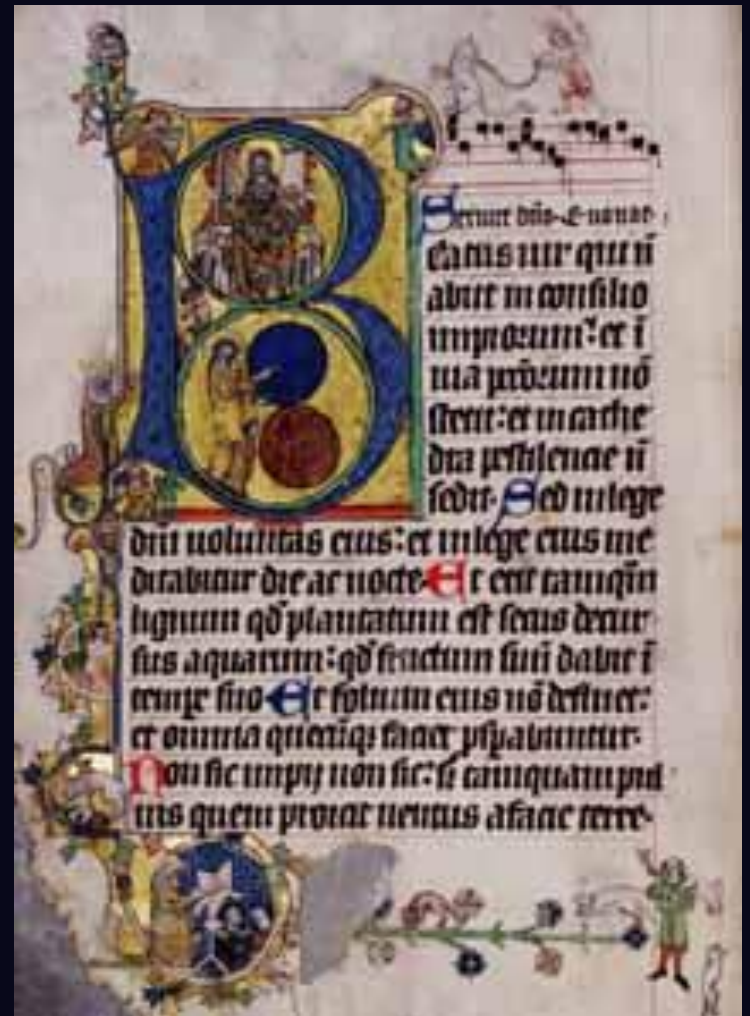 B
Seruite dño. Euouae.
eatus uir qui ñ
abiit in consilio
impiorum: et ī
uia peccōrum nō
stetit: et in cathe
dra pestilencie ñ
sedit. Sed in lege
dñi uoluntas eius: et in lege eius me
ditabitur die ac nocte Et erit tamqm̄
lignum qd̄ plantatum est secus decur
sus aquarum: qd̄ fructum suū dabit ī
tempr̄ suo Et folium eius nō defluet:
et omnia quecūq; faciet p̄spabuntur.
Non sic impij non sic: s; tamquam pul
uis quem proicit uentus a facie terre.